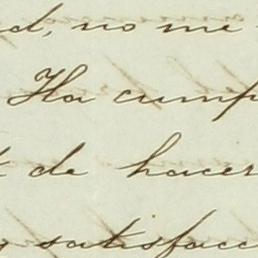 d, no me
Ha cump
de hacer
satisfacc